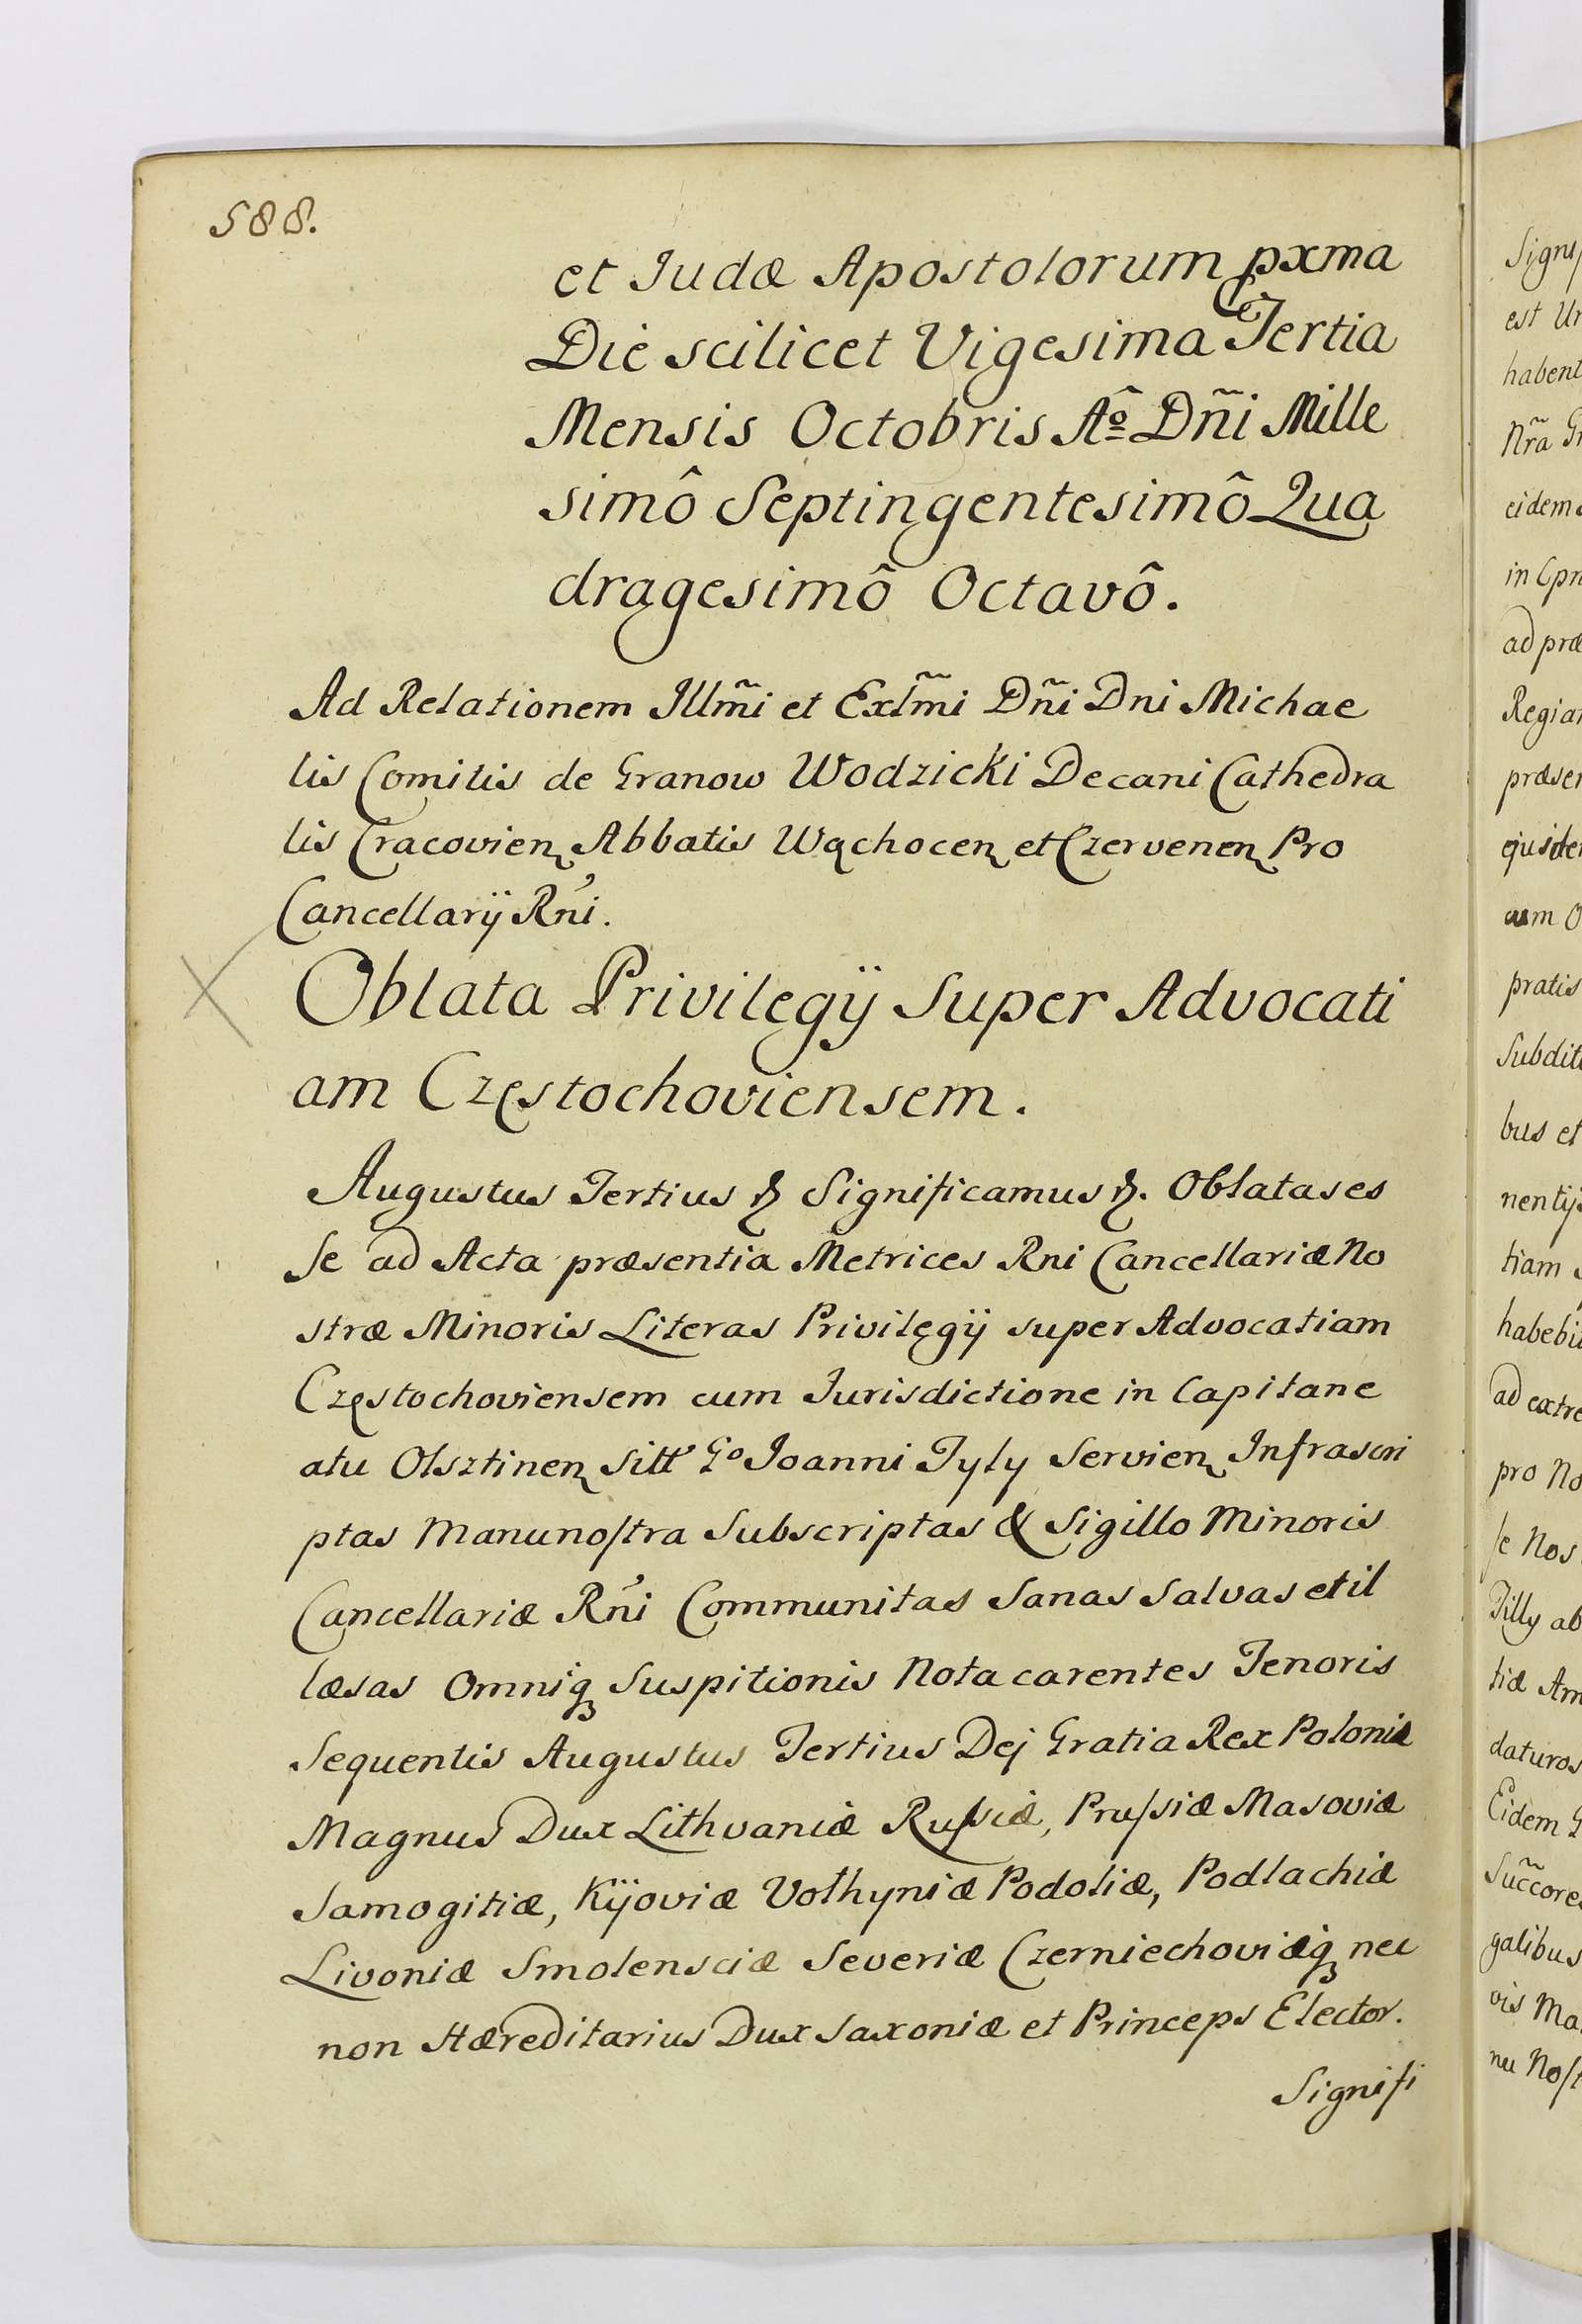 588.
et Judæ Apostolorum pxma
Die scilicet Vigesima Tertia
Mensis Octobris Aô Dñi Mille
simô Septingentesimô Qua
dragesimô Octavô.
Ad Relationem Illm̃i et Exlm̃i Dñi Dni Michae
lis Comitis de Granow Wodzicki Decani Cathedra
lis Cracovien Abbatis Wąchocen et Czervenen Pro
Cancellarÿ Rñi.
Oblata Privilegÿ Super Advocati
am Częstochoviensem.
Augustus Tertius & Significamus &. Oblatas es
se ad Acta præsentia Metrices Rni Cancellariæ No
stræ Minoris Literas Privilegÿ super Advocatiam
Częstochoviensem cum Jurisdictione in Capitane
atu Olsztinen sitt Go Joanni Tyly Servien Infrascri
ptas Manu nostra Subscriptas & Sigillo Minoris
Cancellariæ Rñi Communitas Sanas Salvas et il
læsas Omniq Suspitionis Nota carentes Tenoris
Sequentis Augustus Tertius Dej Gratia Rex Poloniæ
Magnus Dux Lithvaniæ Russiæ, Prussiæ Masoviæ
Samogitiæ, Kÿoviæ Volhyniæ Podoliæ, Podlachiæ
Livoniæ Smolensciæ Severiæ Czerniechoviæq nec
non Hæreditarius Dux Saxoniæ et Princeps Elector.
Signifi
est
habent
Nr̃a
eidem
in
ad præ
præser
pratis
bus et
tiam
pro No
se Nos
Tilly ab
tiæ
daturos
Eidem
galibus
vis